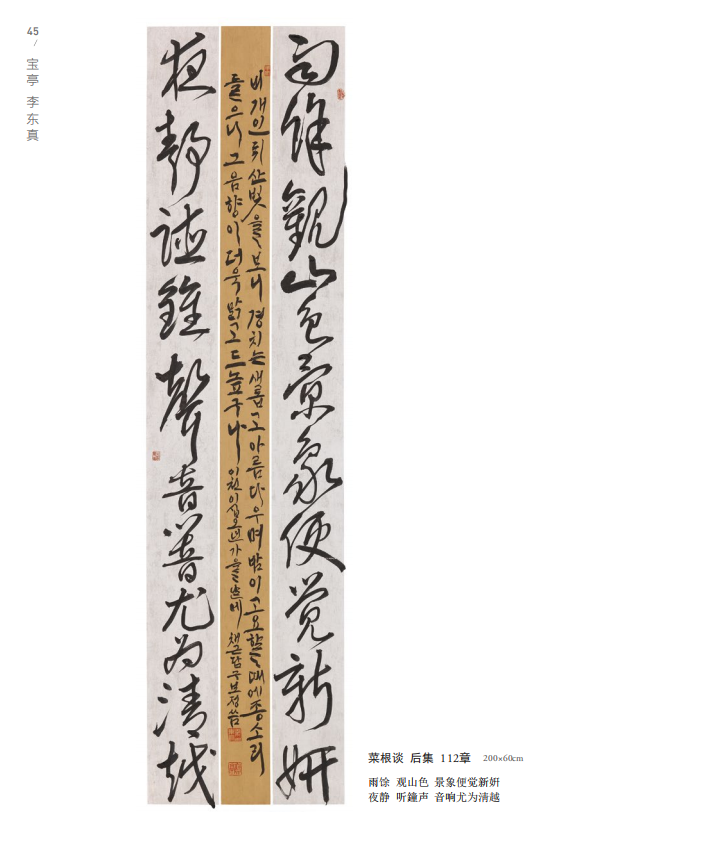 45
/
宝亭 李东真
雨餘觀山色景象便覚新妍
비개인 뒤 산빛을 보니 경치는 새롭고 아름다우며 밤이 고요할 때에 종소리
들으니 그 음향이 더욱 맑고 드높구나 이천이십오년 가을 채근담구 보정 씀
夜靜聴鐘聲音響尤为清越
菜根谈 后集 112章 200×60cm
雨馀 观山色 景象便觉新妍
夜静 听鐘声 音响尤为清越